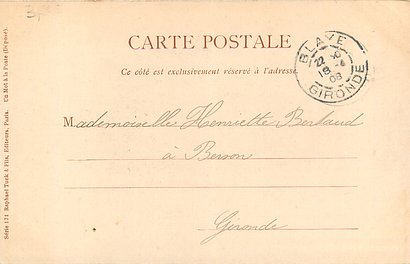 CARTE POSTALE
Ce côté est exclusivement réservé à l'adresse
BLAYE
GIRONDE
Mademoiselle Henriette Berbaud
à Berson
Gironde
Série 171 Raphael Tuck & Fils, Editeurs, Paris. Un Mot à la Poste (Déposé)